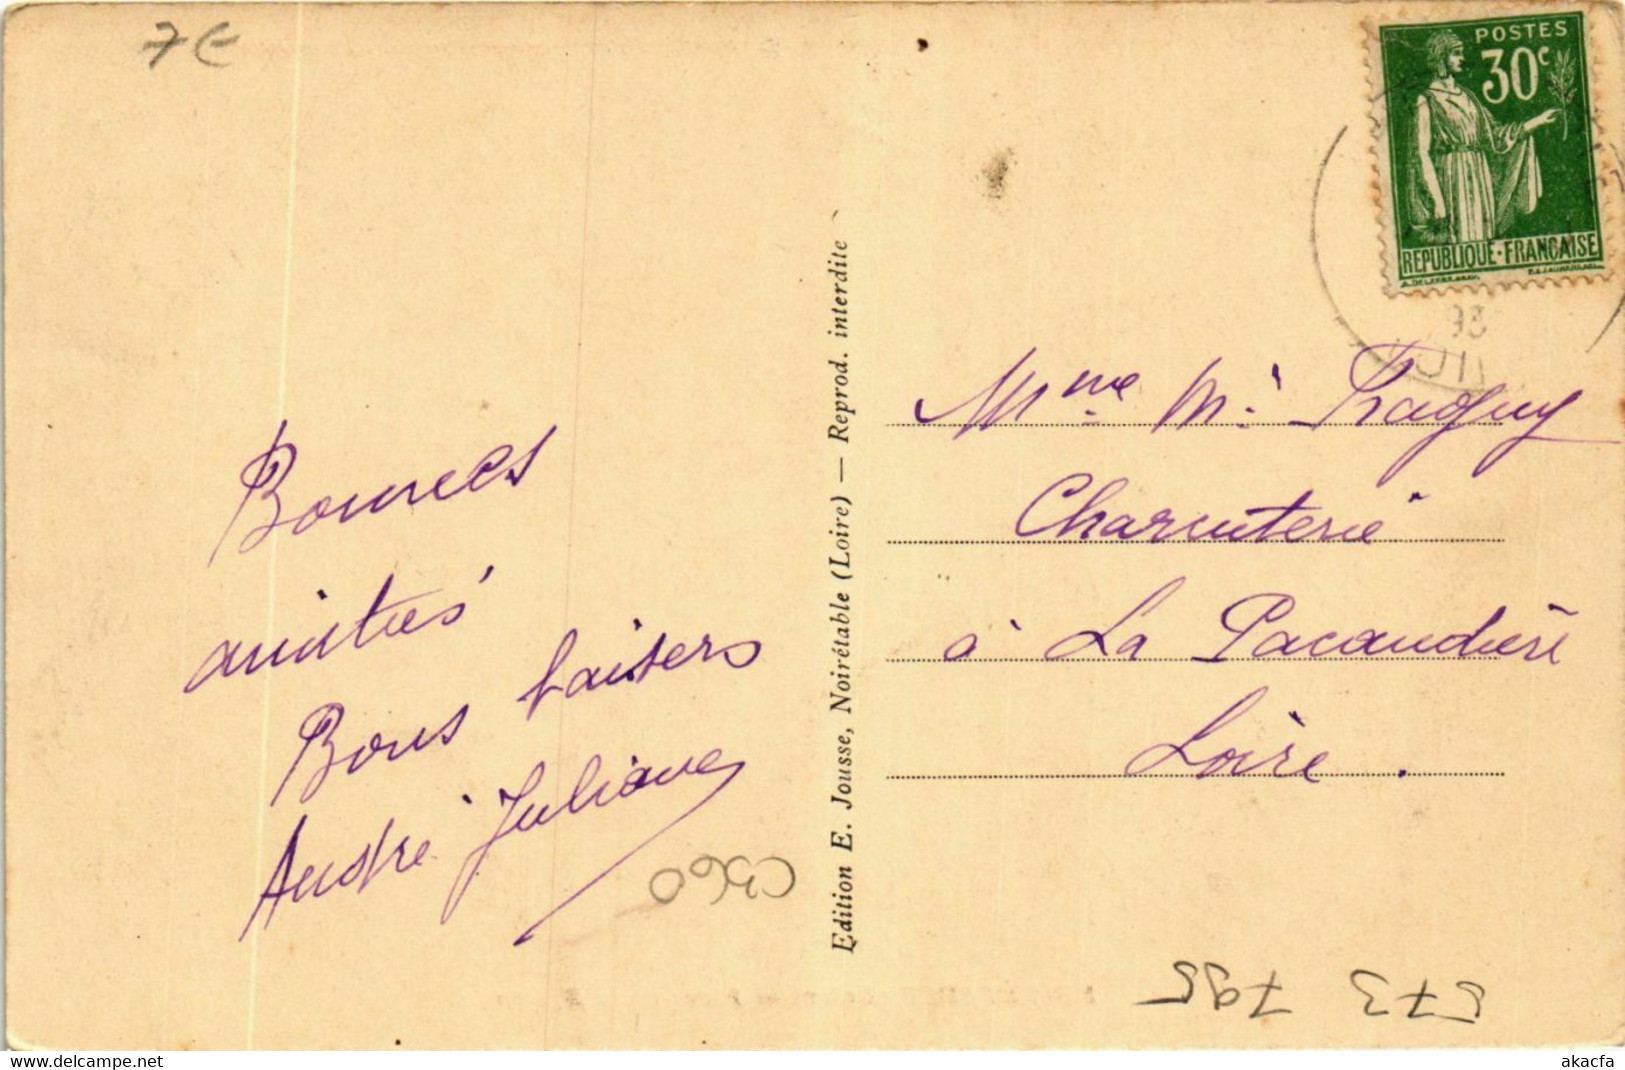 7€
Bonnes
amitiés
Bons baisers
André Juliane
C360
Edition E. Jousse, Noirétable (Loire) — Reprod. interdite
POSTES
30c
REPUBLIQUE·FRANCAISE
Mme Mi
Charcuterie
à La Pacaudière
Loire.
573 795
akacfa
delcampe.net